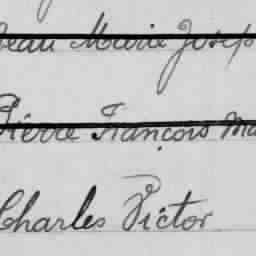 Jean Marie Josep
Pierre François Ma
Charles Victor